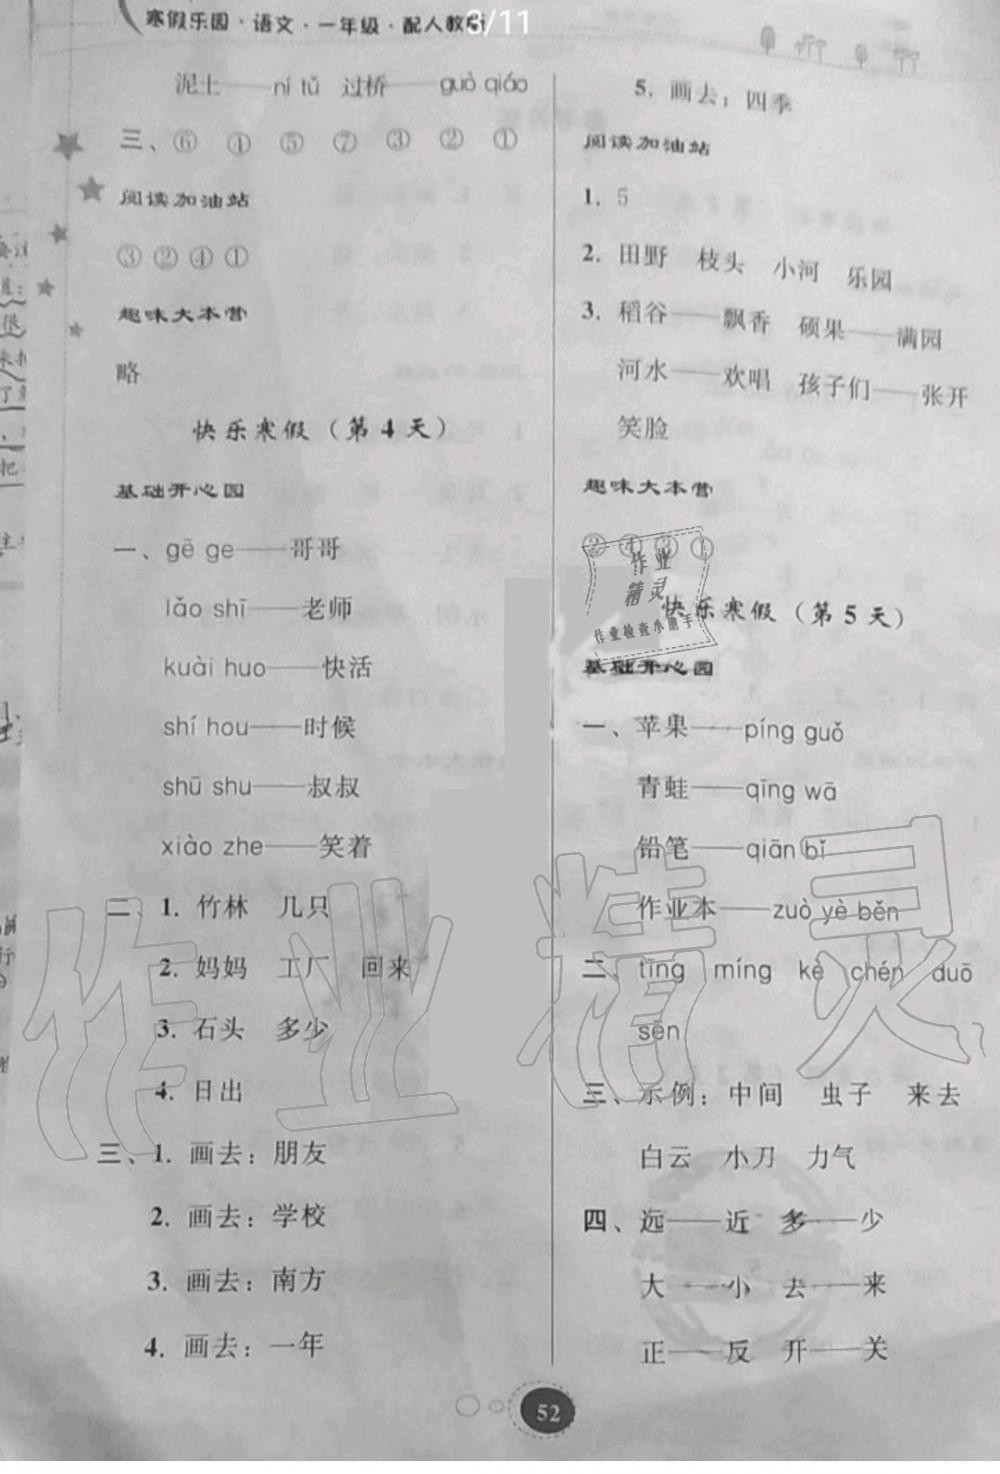 寒假乐园·语文·一年级·配人教版
3/11
泥土——ní tǔ 过桥——guò qiáo
三、⑥ ④ ⑤ ⑦ ③ ② ①
阅读加油站
③②④①
趣味大本营
略
快乐寒假（第4天）
基础开心园
一、gē ge——哥哥
lǎo shī——老师
kuài huo——快活
shí hou——时候
shū shu——叔叔
xiào zhe——笑着
二、1. 竹林 几只
2. 妈妈 工厂 回来
3. 石头 多少
4. 日出
三、1. 画去：朋友
2. 画去：学校
3. 画去：南方
4. 画去：一年
5. 画去：四季
阅读加油站
1. 5
2. 田野 枝头 小河 乐园
3. 稻谷——飘香 硕果——满园
河水——欢唱 孩子们——张开
笑脸
趣味大本营
② ④ ③ ①
快乐寒假（第5天）
基础开心园
一、苹果——píng guǒ
青蛙——qīng wā
铅笔——qiān bǐ
作业本——zuò yè běn
二、tīng míng kè chén duō
sēn
三、示例：中间 虫子 来去
白云 小刀 力气
四、远——近 多——少
大——小 去——来
正——反 开——关
52
作业
精灵
作业检查小助手
作业精灵